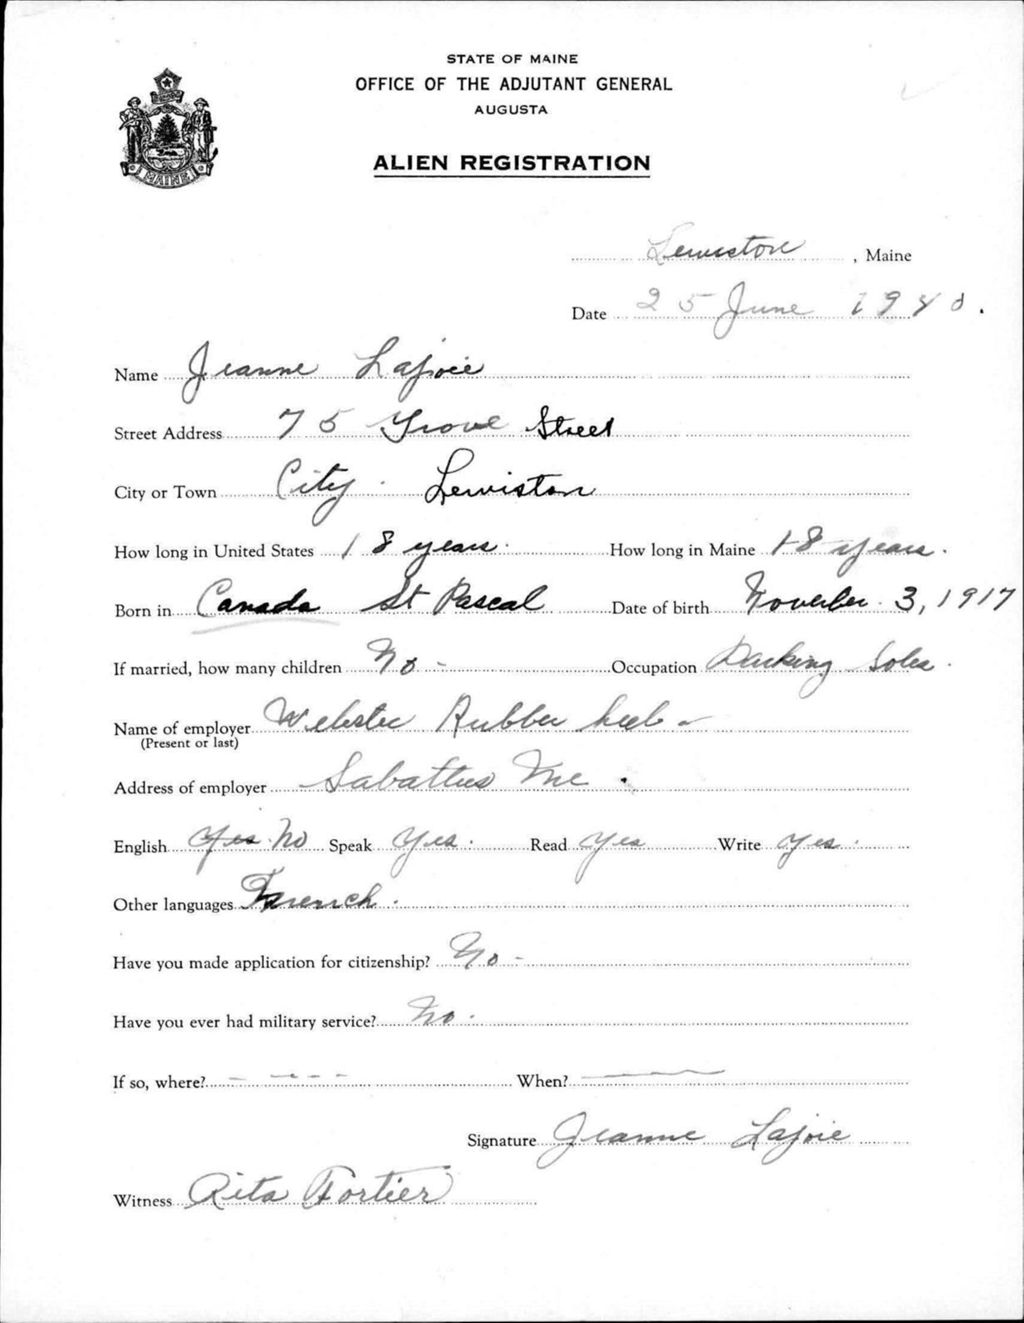 STATE OF MAINE
OFFICE OF THE ADJUTANT GENERAL
AUGUSTA
ALIEN REGISTRATION
MAINE
Lewiston, Maine
Date 25 June 1940.
Name Jeanne Lajoie
Street Address 75 Grove Street
City or Town City. Lewiston
How long in United States 18 years. How long in Maine 18 years.
Born in Canada St Pascal Date of birth November 3, 1917
If married, how many children No - Occupation Packing Soles.
Name of employer Webster Rubber heel -
(Present or last)
Address of employer Sabattus Me.
English Yes No Speak Yes. Read Yes Write Yes.
Other languages French.
Have you made application for citizenship? No -
Have you ever had military service? No.
If so, where? - - - - When? —
Signature Jeanne Lajoie
Witness Rita Fortier